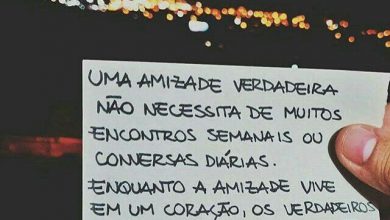 UMA AMIZADE VERDADEIRA
NÃO NECESSITA DE MUITOS
ENCONTROS SEMANAIS OU
CONVERSAS DIÁRIAS.
ENQUANTO A AMIZADE VIVE
EM UM CORAÇÃO, OS VERDADEIROS